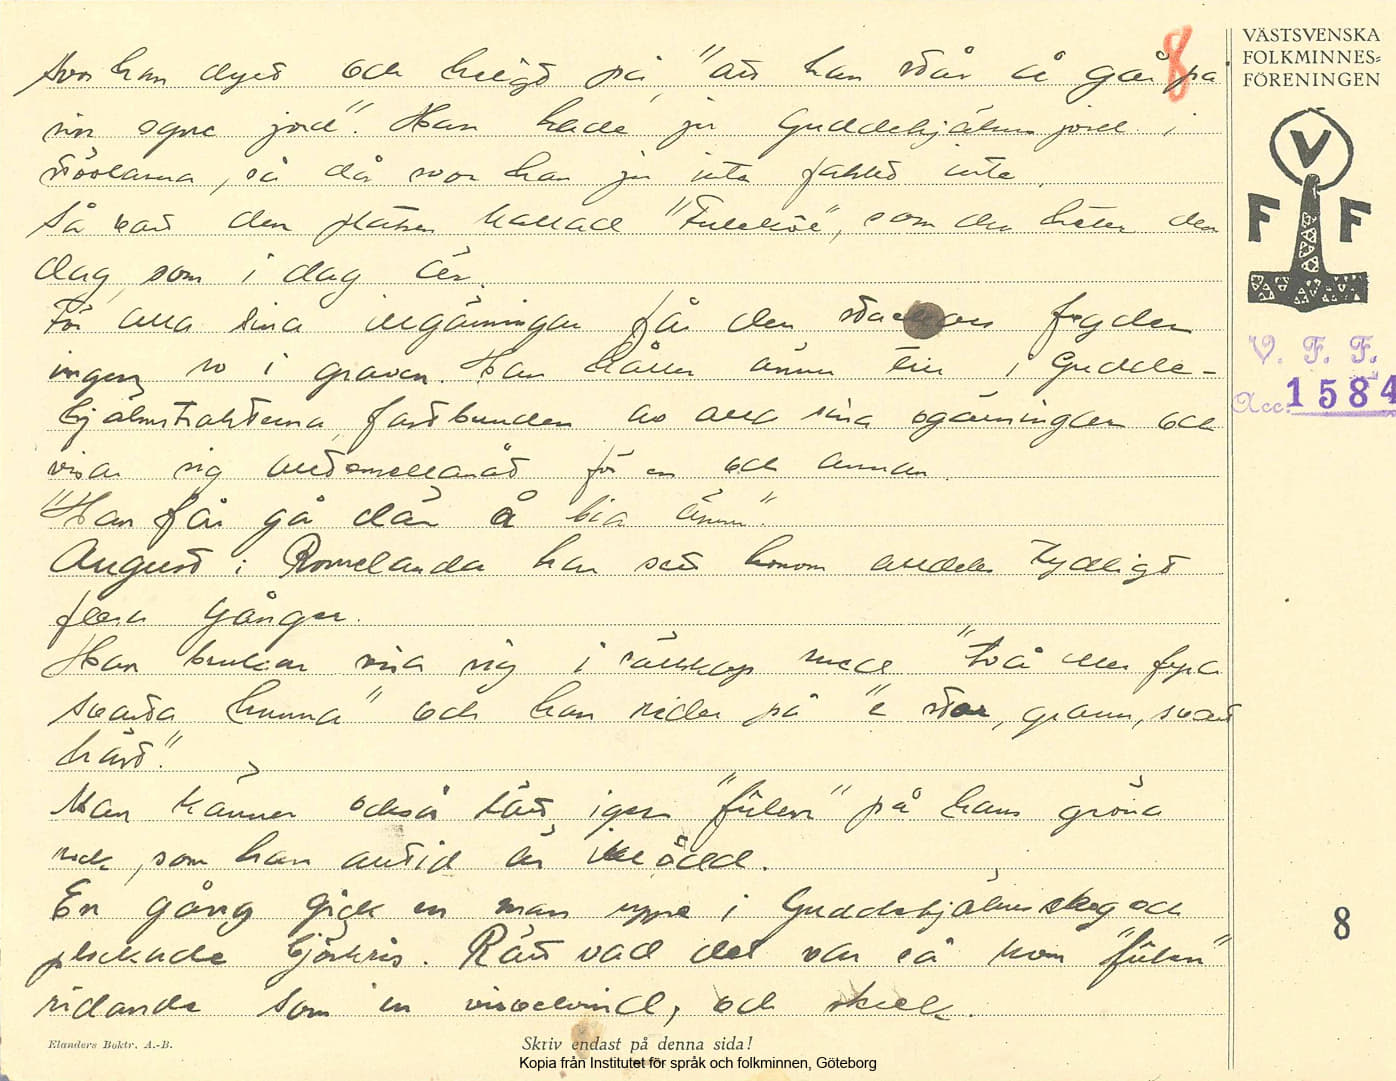 svor han dyrt och heligt på, "att han står å går på
sin egne jord". Han hade ju Guddehjälms jord i
stövlarna, så då svor han ju inte falskt inte.
Så vart den platsen kallad "Fuleküe", som den heter den
dag som i dag är.
För alla sina ilgärningar får den stackars fogden
ingen ro i graven. Han håller ännu till i Gudde-
hjälmstrakterna, fastbunden av alla sina ogärningar och
visar sig allt emellanåt för en och annan.
"Han får gå där å bia ännu".
August i Romelanda har sett honom alldeles tydligt
flera gånger.
Han brukar visa sig i sällskap med "två eller fyra
svarta hunna" och han rider på "e stor, grann, svart
häst".
Man känner också lätt igen "fülen" på hans gröna
rock, som han alltid är iklädd.
En gång gick en man uppe i Guddehjälms skog och
plockade björkris. Rätt vad det var så kom "fülen"
ridande som en virvelvind, och skrek.
8
VÄSTSVENSKA
FOLKMINNES=
FÖRENINGEN
V
F F
V. F. F.
Acc. 1584
8
Elanders Boktr. A.-B.
Skriv endast på denna sida!
Kopia från Institutet för språk och folkminnen, Göteborg